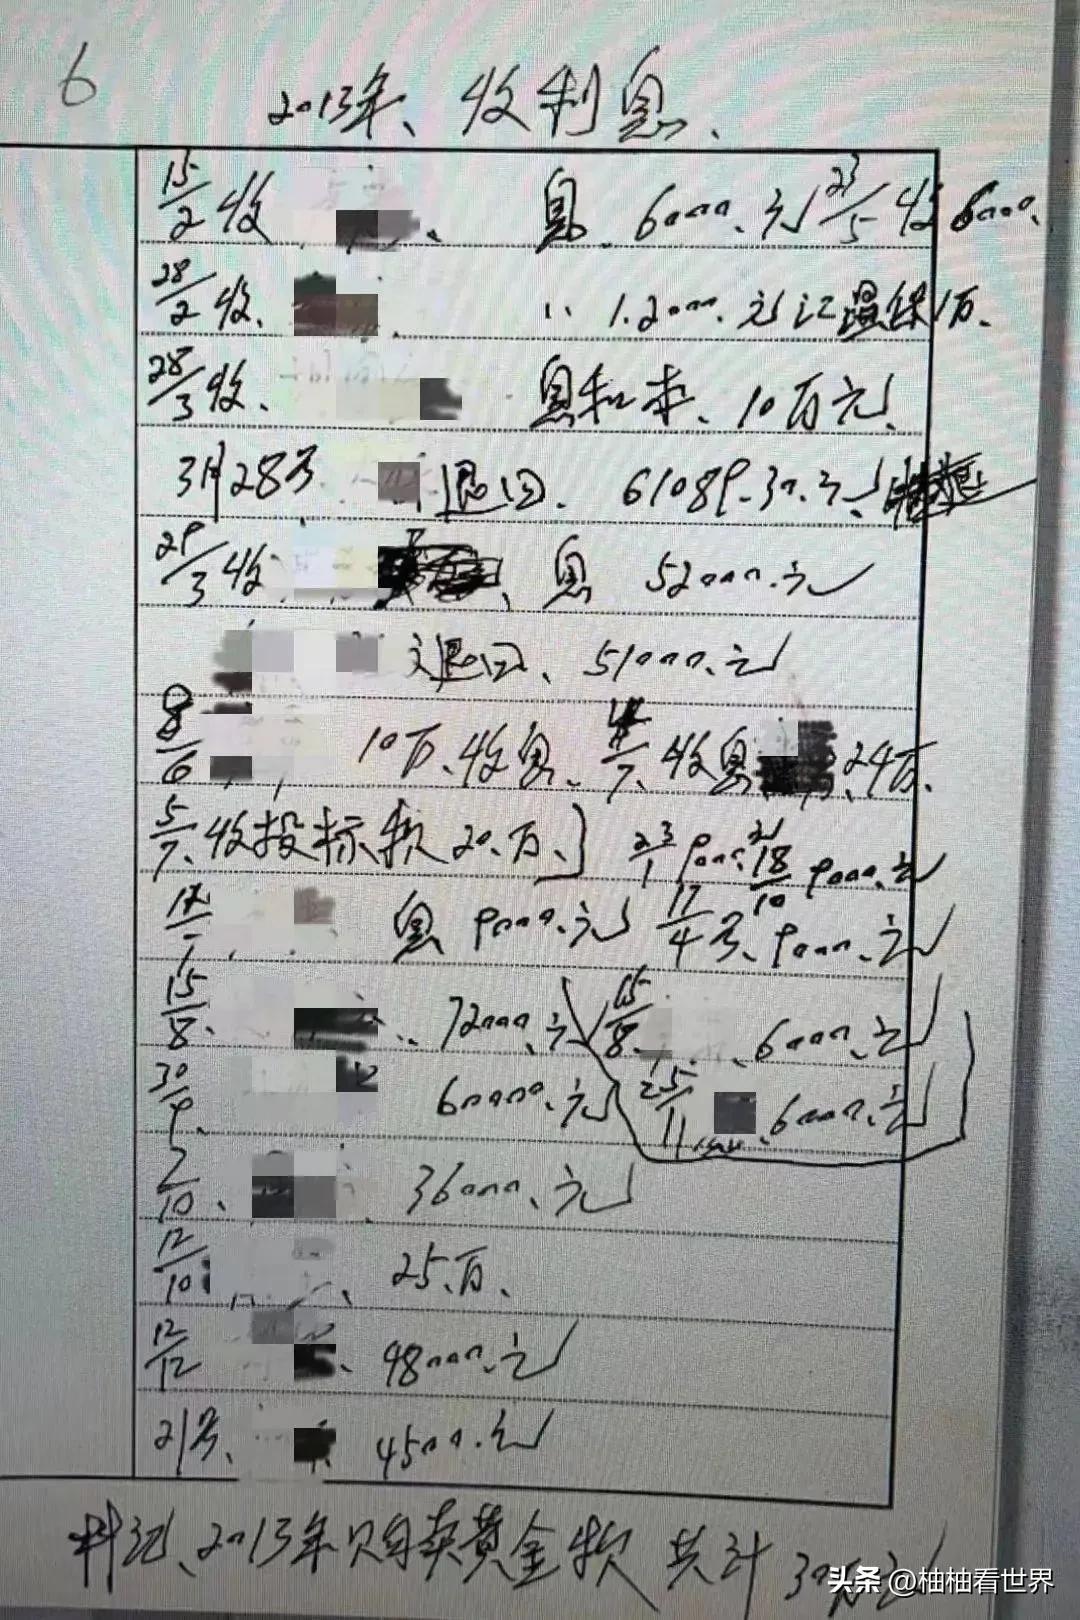 6
2013年、收利息、
15/2收 息、6000、元 23/5收6000、
28/2收、 、、1.2000、元 汇温保1万、
28/3收、 息和本、10万元、
3月28号 退回、61089.30、元
29/3收 、息 52000、元
退回、51000、元
8/6 10万、收息、 /7、收息 、24万、
5/7、收投标款20万、 23/1 9000、 18/10 9000、元
息9000、元 17/4号、9000、元
15/8、 、72000、元 15/8、 、6000、元
30/9、 60000、元 25/11 、6000、元
2/10、 36000、元
12/10 、25万、
12/12 、48000、元
21号、 4500、元
2013年购买黄金款 共计30万元
头条 @柚柚看世界